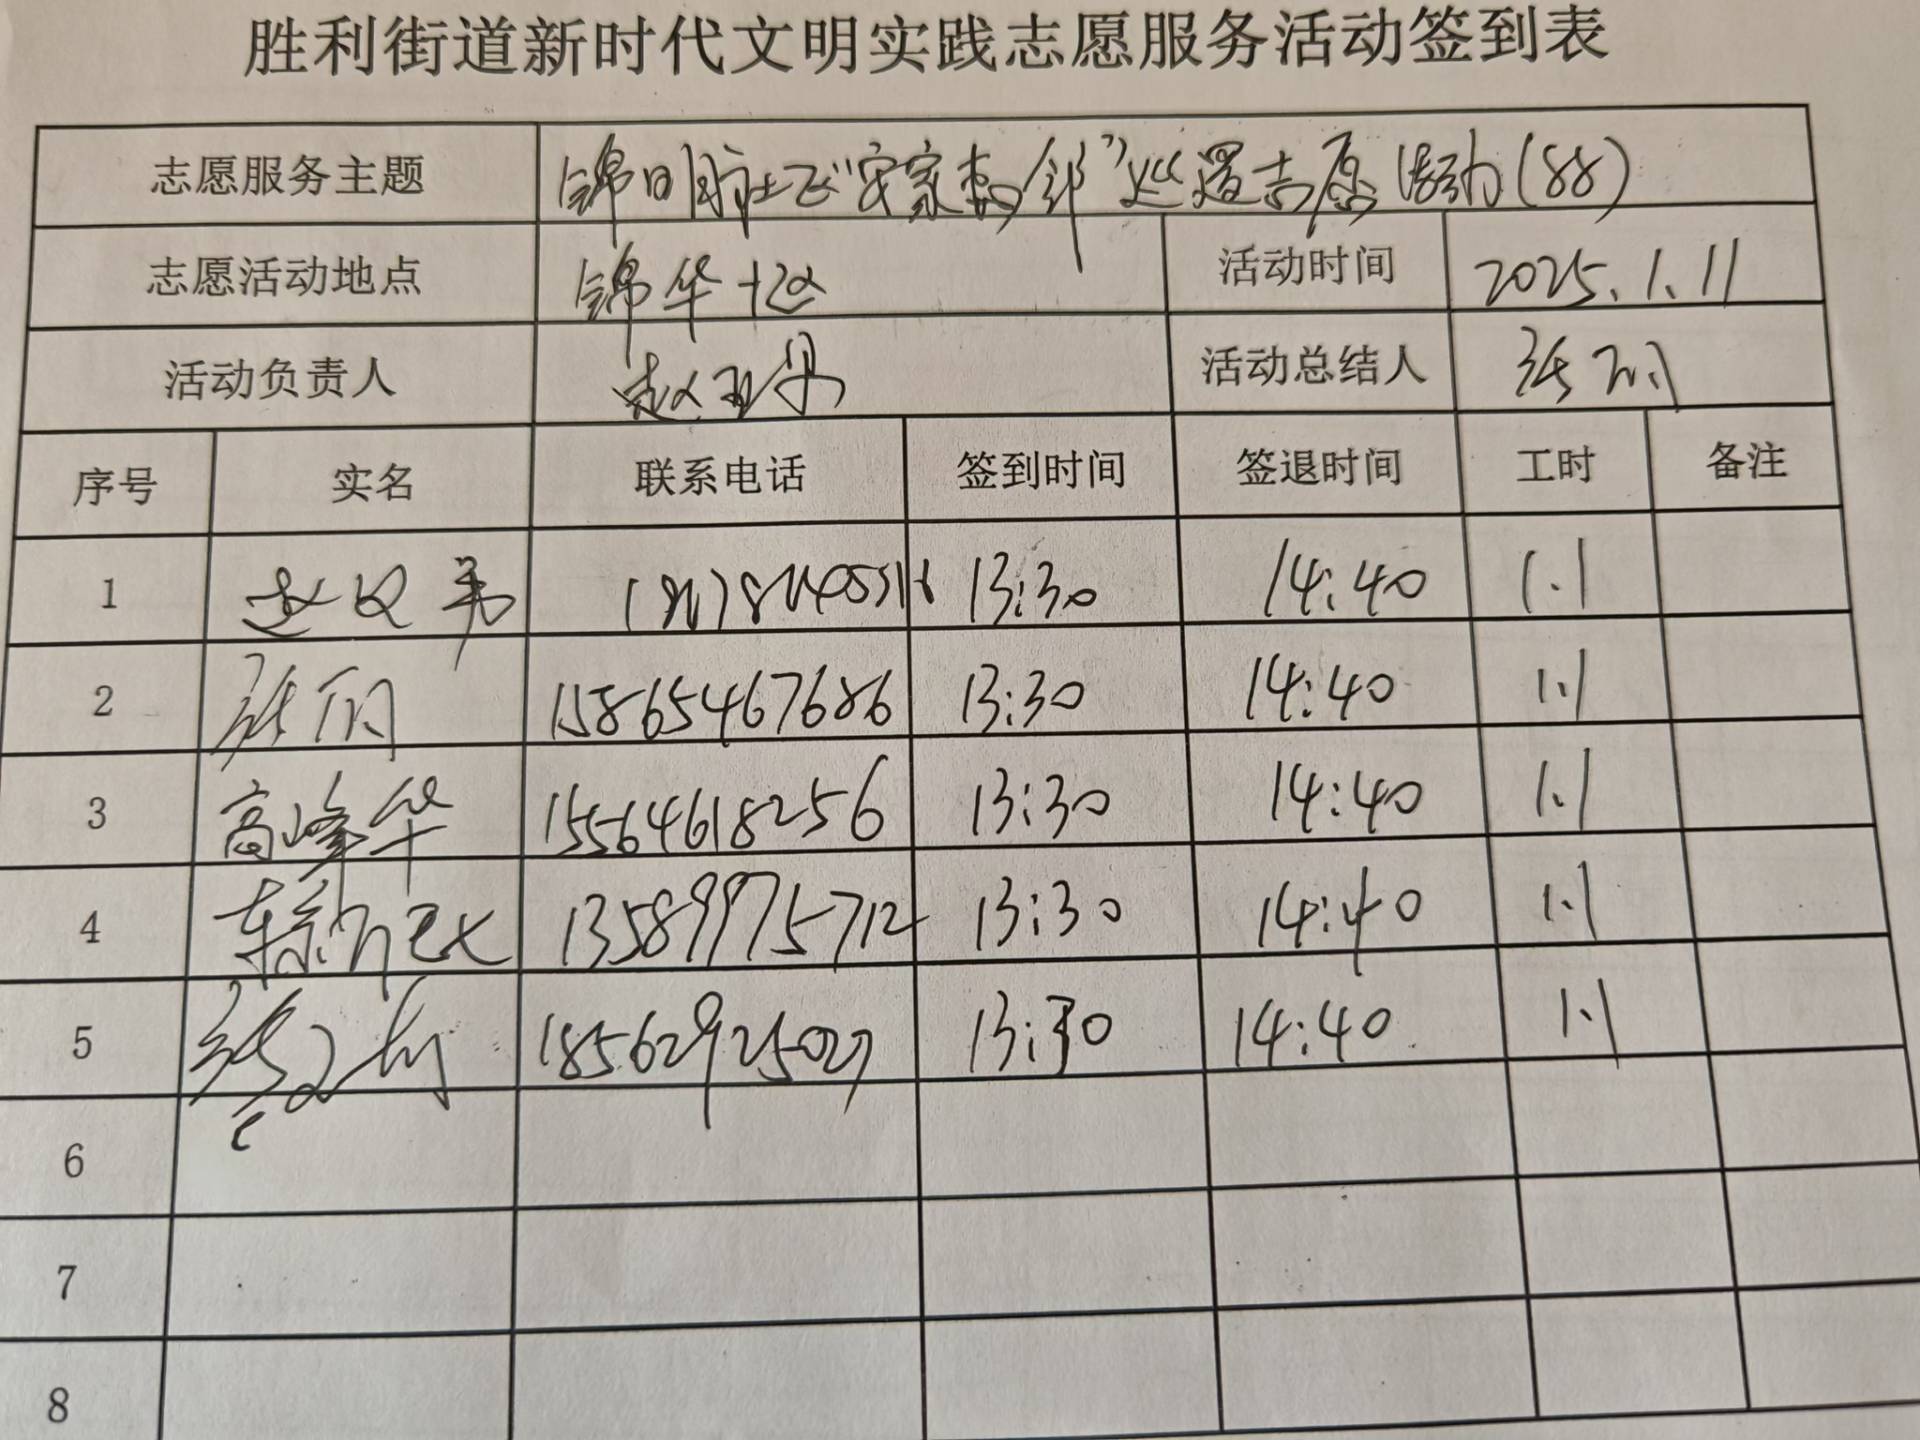 胜利街道新时代文明实践志愿服务活动签到表
志愿服务主题 锦明社区“安家 邻”巡逻志愿活动(88)
志愿活动地点 锦华 活动时间 2025.1.11
活动负责人 赵 活动总结人 张
序号 实名 联系电话 签到时间 签退时间 工时 备注
1 赵 13:30 14:40 1.1
2 张丽 15865467686 13:30 14:40 1.1
3 高峰华 15564618256 13:30 14:40 1.1
4 13589975712 13:30 14:40 1.1
5 张 13:30 14:40 1.1
6
7
8